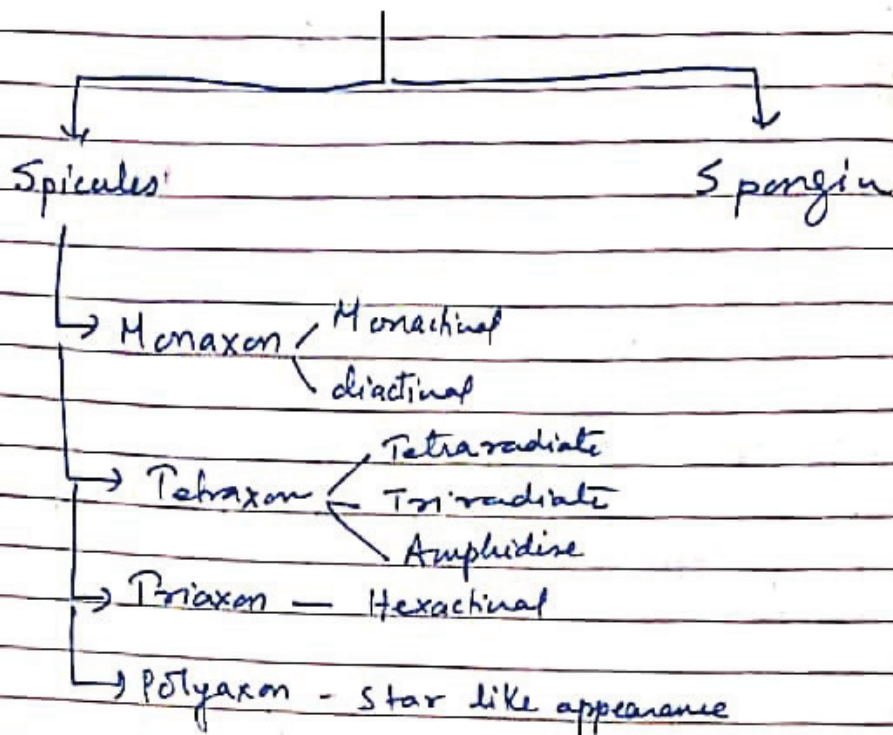 Spicules Spongin
Monaxon Monactinal
diactinal
Tetraxon Tetraradiate
Triradiate
Amphidisc
Triaxon — Hexactinal
Polyaxon - Star like appearance